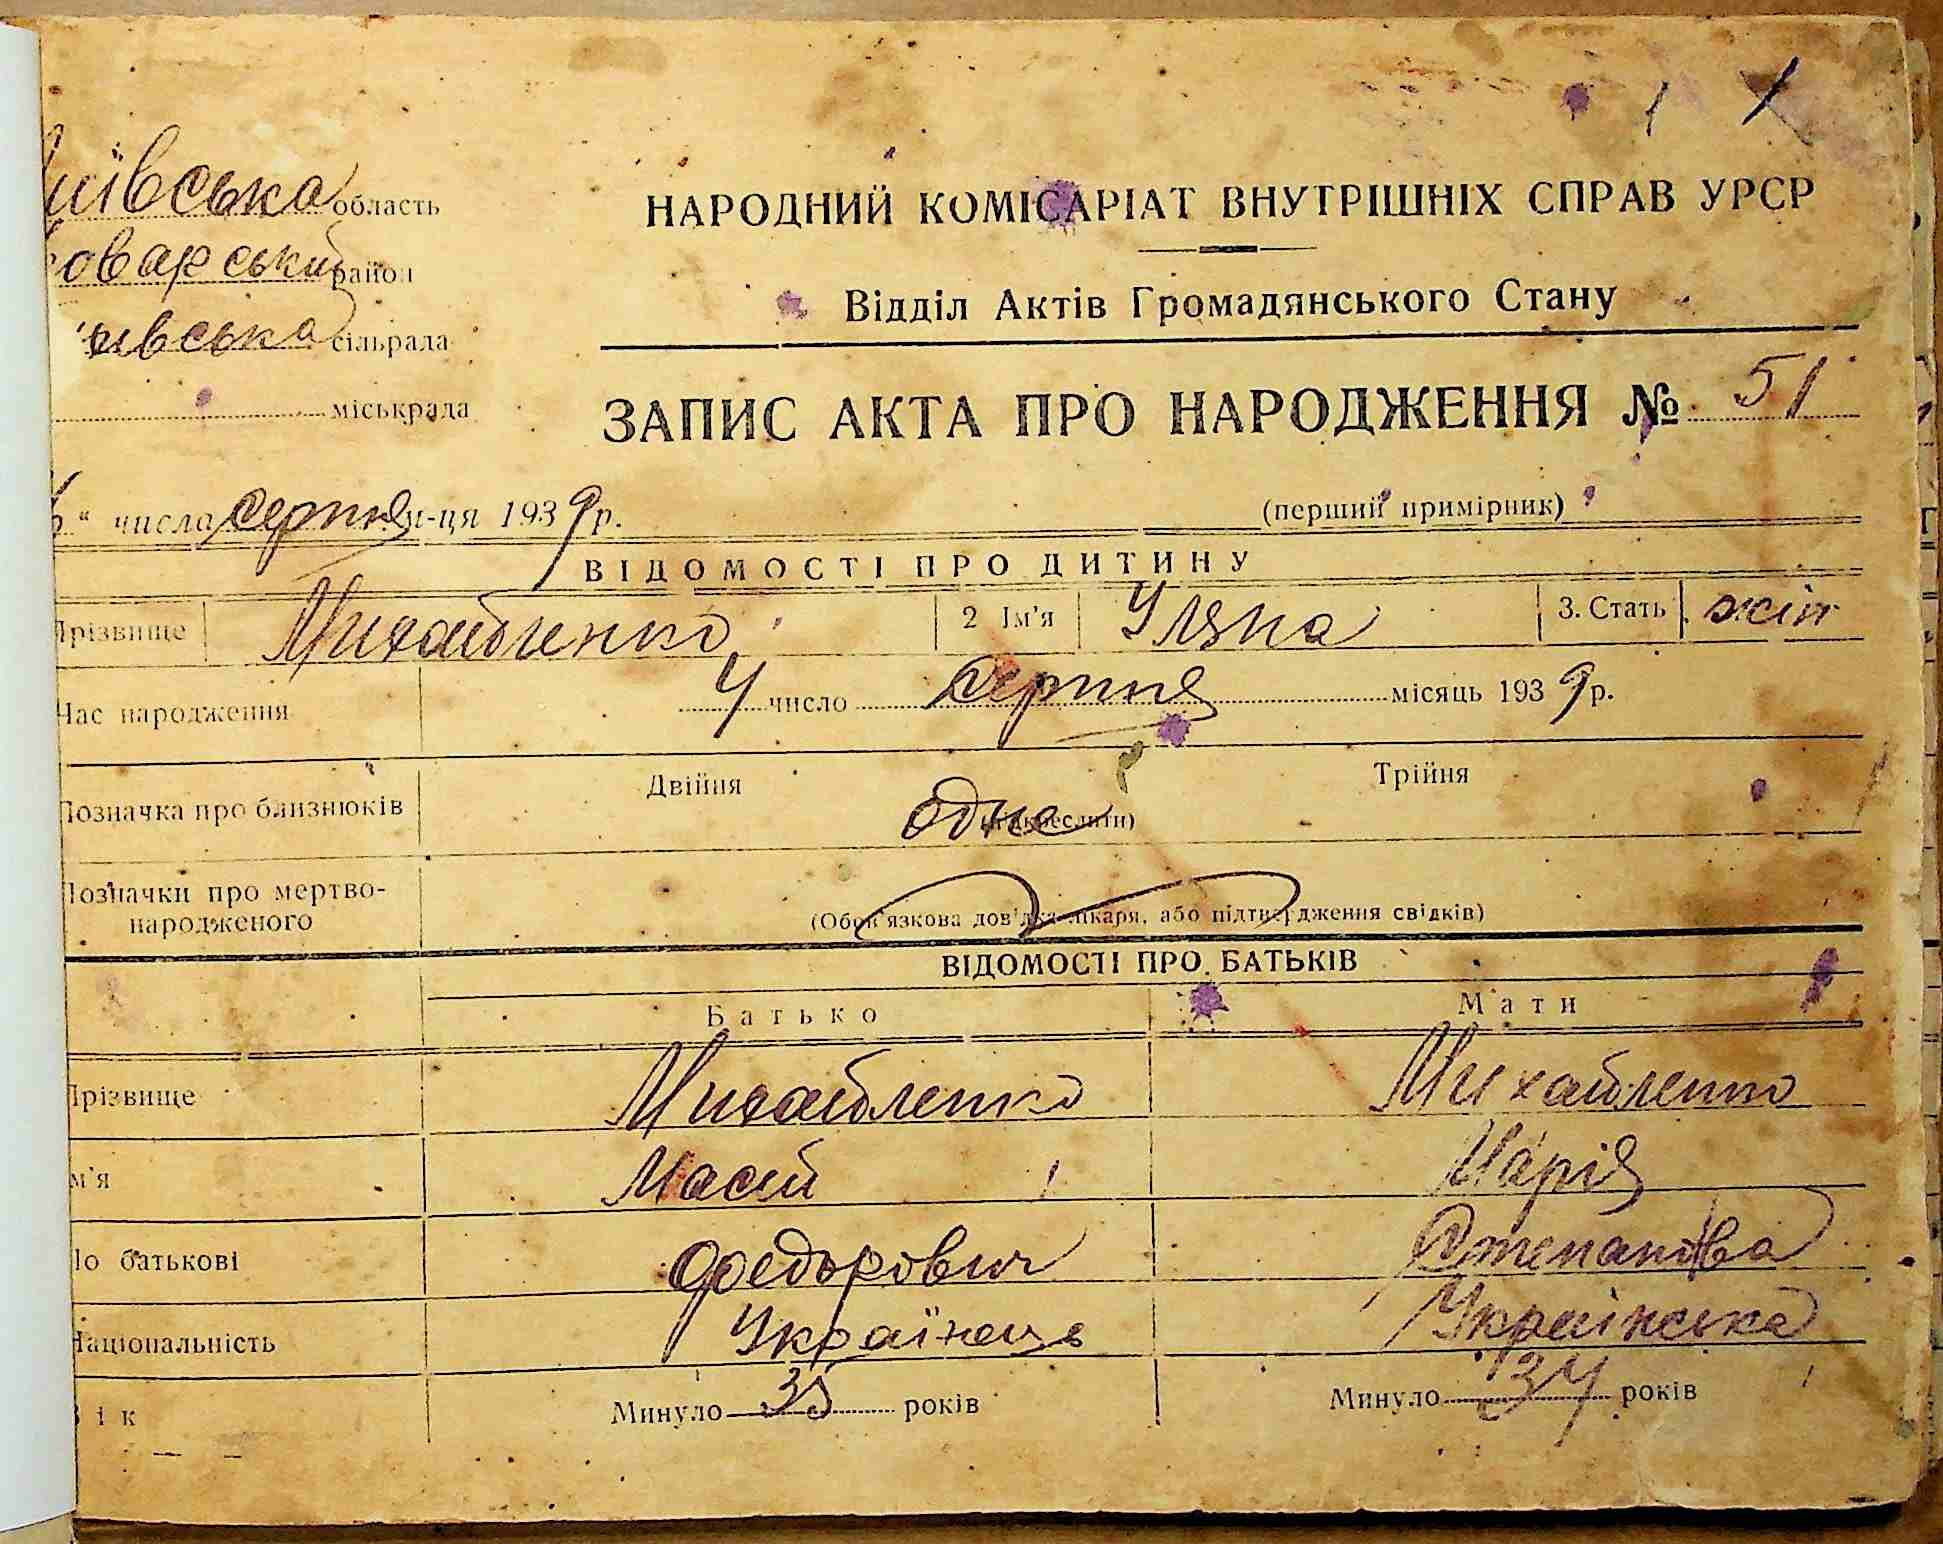 1 1
НАРОДНИЙ КОМІСАРІАТ ВНУТРІШНІХ СПРАВ УРСР
Відділ Актів Громадянського Стану
иївська область
оварський район
івська сільрада
міськрада
ЗАПИС АКТА ПРО НАРОДЖЕННЯ № 51
(перший примірник)
" числа серпня м-ця 1939 р.
ВІДОМОСТІ ПРО ДИТИНУ
Прізвище Михайленко 2 Ім'я Уляна 3. Стать жін
Час народження 4 число серпня місяць 1939 р.
Позначка про близнюків Двійня одне Трійня
(підкреслити)
Позначки про мертво-
народженого
(Обов'язкова довідка лікаря, або підтвердження свідків)
ВІДОМОСТІ ПРО БАТЬКІВ
Батько Мати
Прізвище Михайленко Михайленко
м'я Марія
По батькові Федорович Степановва
Національність Українець Українська
Вік Минуло 35 років Минуло 34 років